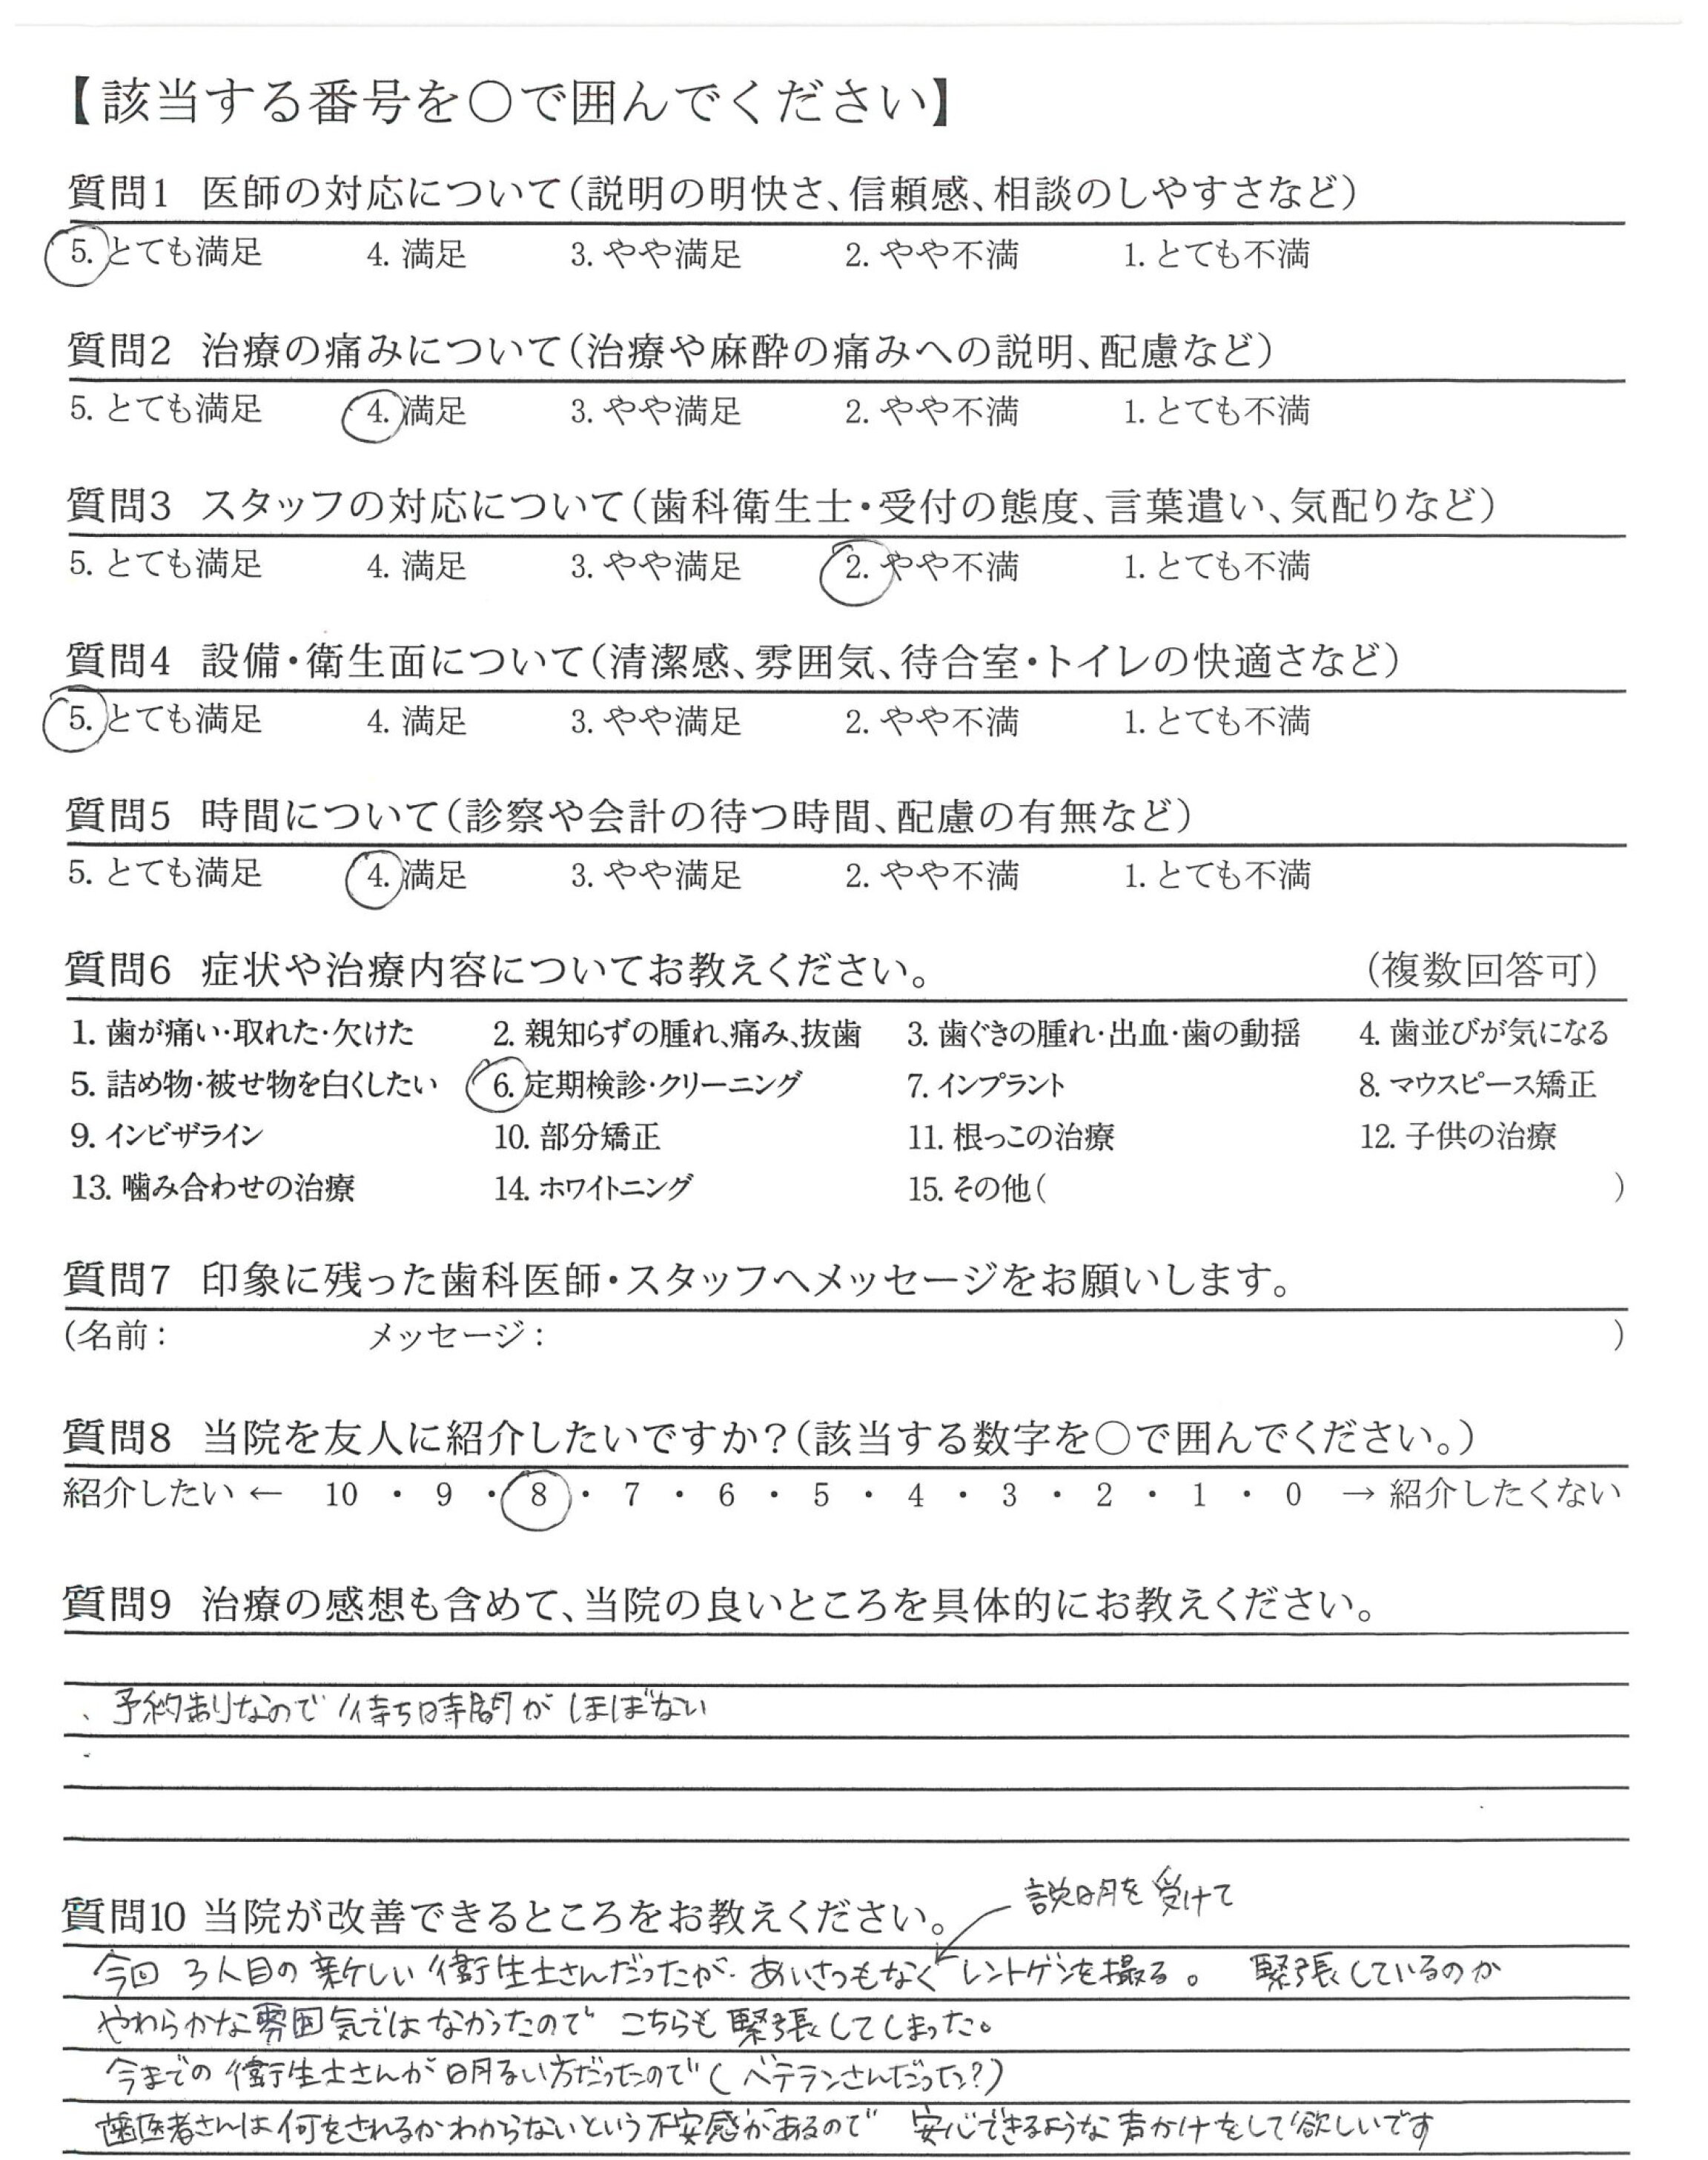 【該当する番号を○で囲んでください】
質問1 医師の対応について(説明の明快さ、信頼感、相談のしやすさなど)
5. とても満足 4. 満足 3. やや満足 2. やや不満 1. とても不満
質問2 治療の痛みについて(治療や麻酔の痛みへの説明、配慮など)
5. とても満足 4. 満足 3. やや満足 2. やや不満 1. とても不満
質問3 スタッフの対応について(歯科衛生士・受付の態度、言葉遣い、気配りなど)
5. とても満足 4. 満足 3. やや満足 2. やや不満 1. とても不満
質問4 設備・衛生面について(清潔感、雰囲気、待合室・トイレの快適さなど)
5. とても満足 4. 満足 3. やや満足 2. やや不満 1. とても不満
質問5 時間について(診察や会計の待つ時間、配慮の有無など)
5. とても満足 4. 満足 3. やや満足 2. やや不満 1. とても不満
質問6 症状や治療内容についてお教えください。 (複数回答可)
1. 歯が痛い・取れた・欠けた 2. 親知らずの腫れ、痛み、抜歯 3. 歯ぐきの腫れ・出血・歯の動揺 4. 歯並びが気になる
5. 詰め物・被せ物を白くしたい 6. 定期検診・クリーニング 7. インプラント 8. マウスピース矯正
9. インビザライン 10. 部分矯正 11. 根っこの治療 12. 子供の治療
13. 噛み合わせの治療 14. ホワイトニング 15. その他( )
質問7 印象に残った歯科医師・スタッフへメッセージをお願いします。
(名前: メッセージ: )
質問8 当院を友人に紹介したいですか?(該当する数字を○で囲んでください。)
紹介したい ← 10 ・ 9 ・ 8 ・ 7 ・ 6 ・ 5 ・ 4 ・ 3 ・ 2 ・ 1 ・ 0 → 紹介したくない
質問9 治療の感想も含めて、当院の良いところを具体的にお教えください。
、予約制なので待ち時間がほぼない
質問10 当院が改善できるところをお教えください。
説明を受けて
今回 3人目の新しい衛生士さんだったが、あいさつもなくレントゲンを撮る。 緊張しているのか
やわらかな雰囲気ではなかったので こちらも緊張してしまった。
今までの衛生士さんが明るい方だったので(ベテランさんだった?)
歯医者さんは何をされるかわからないという不安感があるので 安心できるような声かけをして欲しいです